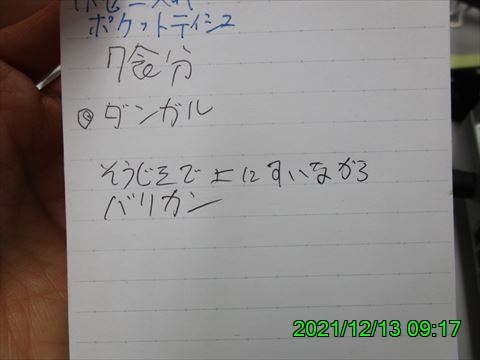 ポケットティシュ
7食分
ダンガル
そうじきで上にすいながら
バリカン
2021/12/13 09:17